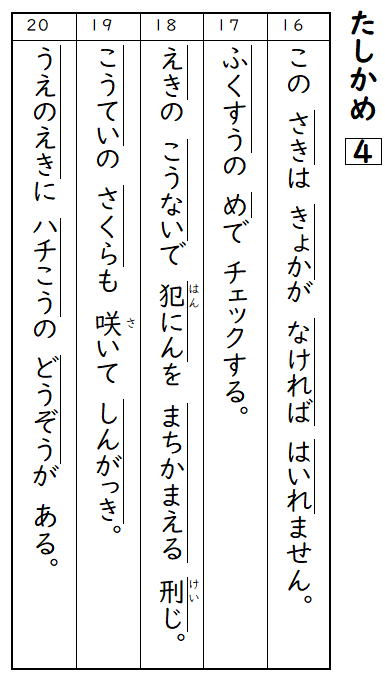 たしかめ 4
16
この さきは きょかが なければ はいれません。
17
ふくすうの めで チェックする。
18
えきの こうないで 犯にんを まちかまえる 刑じ。
はん
けい
19
こうていの さくらも 咲いて しんがっき。
さ
20
うえのえきに ハチこうの どうぞうが ある。